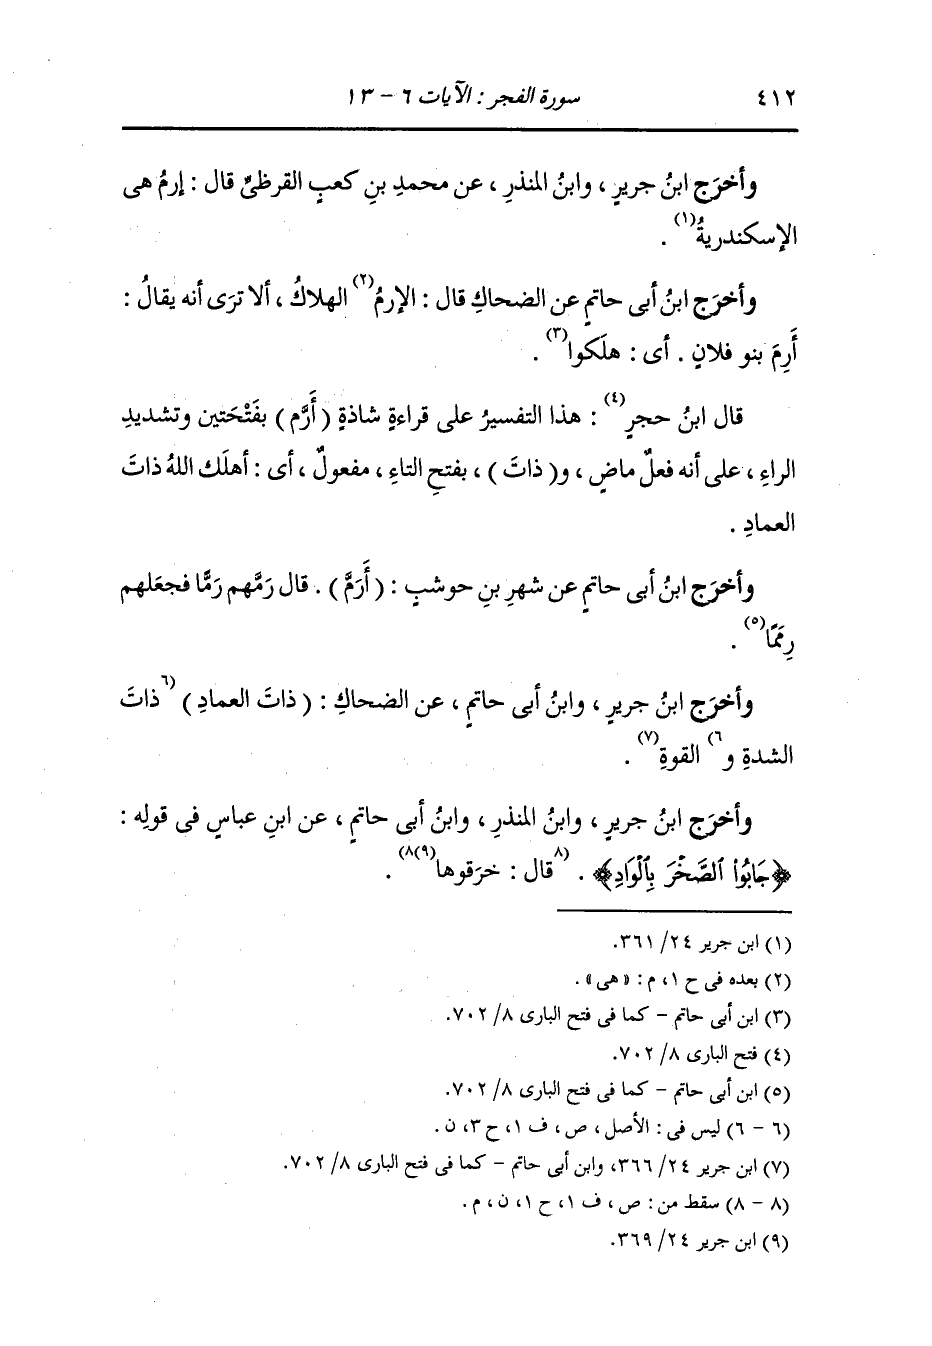 ٤١٢ سورة الفجر : الآيات ٦ - ١٣
وأخرَج ابنُ جريرٍ ، وابنُ المنذرِ ، عن محمدِ بنِ كعبٍ القرظىِّ قال : إرمُ هى
الإسكندريةُ(١) .
وأخرَج ابنُ أبى حاتمٍ عن الضحاكِ قال : الإرمُ(٢) الهلاكُ ، ألا ترَى أنه يقالُ :
أَرِمَ بنو فلانٍ . أى : هلَكوا(٣) .
قال ابنُ حجرٍ(٤) : هذا التفسيرُ على قراءةٍ شاذةٍ ( أَرَّم ) بفَتْحَتين وتشديدِ
الراءِ ، على أنه فعلٌ ماضٍ ، و( ذاتَ ) ، بفتحِ التاءِ ، مفعولٌ ، أى : أهلَك اللهُ ذاتَ
العمادِ .
وأخرَج ابنُ أبى حاتمٍ عن شهرِ بنِ حوشبٍ : ( أَرَمَّ ) . قال رَمَّهم رَمًّا فجعَلهم
رِمَمًا(٥) .
وأخرَج ابنُ جريرٍ ، وابنُ أبى حاتمٍ ، عن الضحاكِ : ( ذاتَ العمادِ ) (٦ذاتَ
الشدةِ و٦) القوةِ(٧) .
وأخرَج ابنُ جريرٍ ، وابنُ المنذرِ ، وابنُ أبى حاتمٍ ، عن ابنِ عباسٍ فى قولِه :
﴿جَابُوا۟ ٱلصَّخْرَ بِٱلْوَادِ﴾ . (٨قال : خرَقوها(٩)٨) .
(١) ابن جرير ٢٤/ ٣٦١.
(٢) بعده فى ح ١، م : « هى » .
(٣) ابن أبى حاتم - كما فى فتح البارى ٨/ ٧٠٢.
(٤) فتح البارى ٨/ ٧٠٢.
(٥) ابن أبى حاتم - كما فى فتح البارى ٨/ ٧٠٢.
(٦ - ٦) ليس فى : الأصل ، ص ، ف ١، ح ٣، ن .
(٧) ابن جرير ٢٤/ ٣٦٦، وابن أبى حاتم - كما فى فتح البارى ٨/ ٧٠٢.
(٨ - ٨) سقط من : ص ، ف ١، ح ١، ن ، م .
(٩) ابن جرير ٢٤/ ٣٦٩.